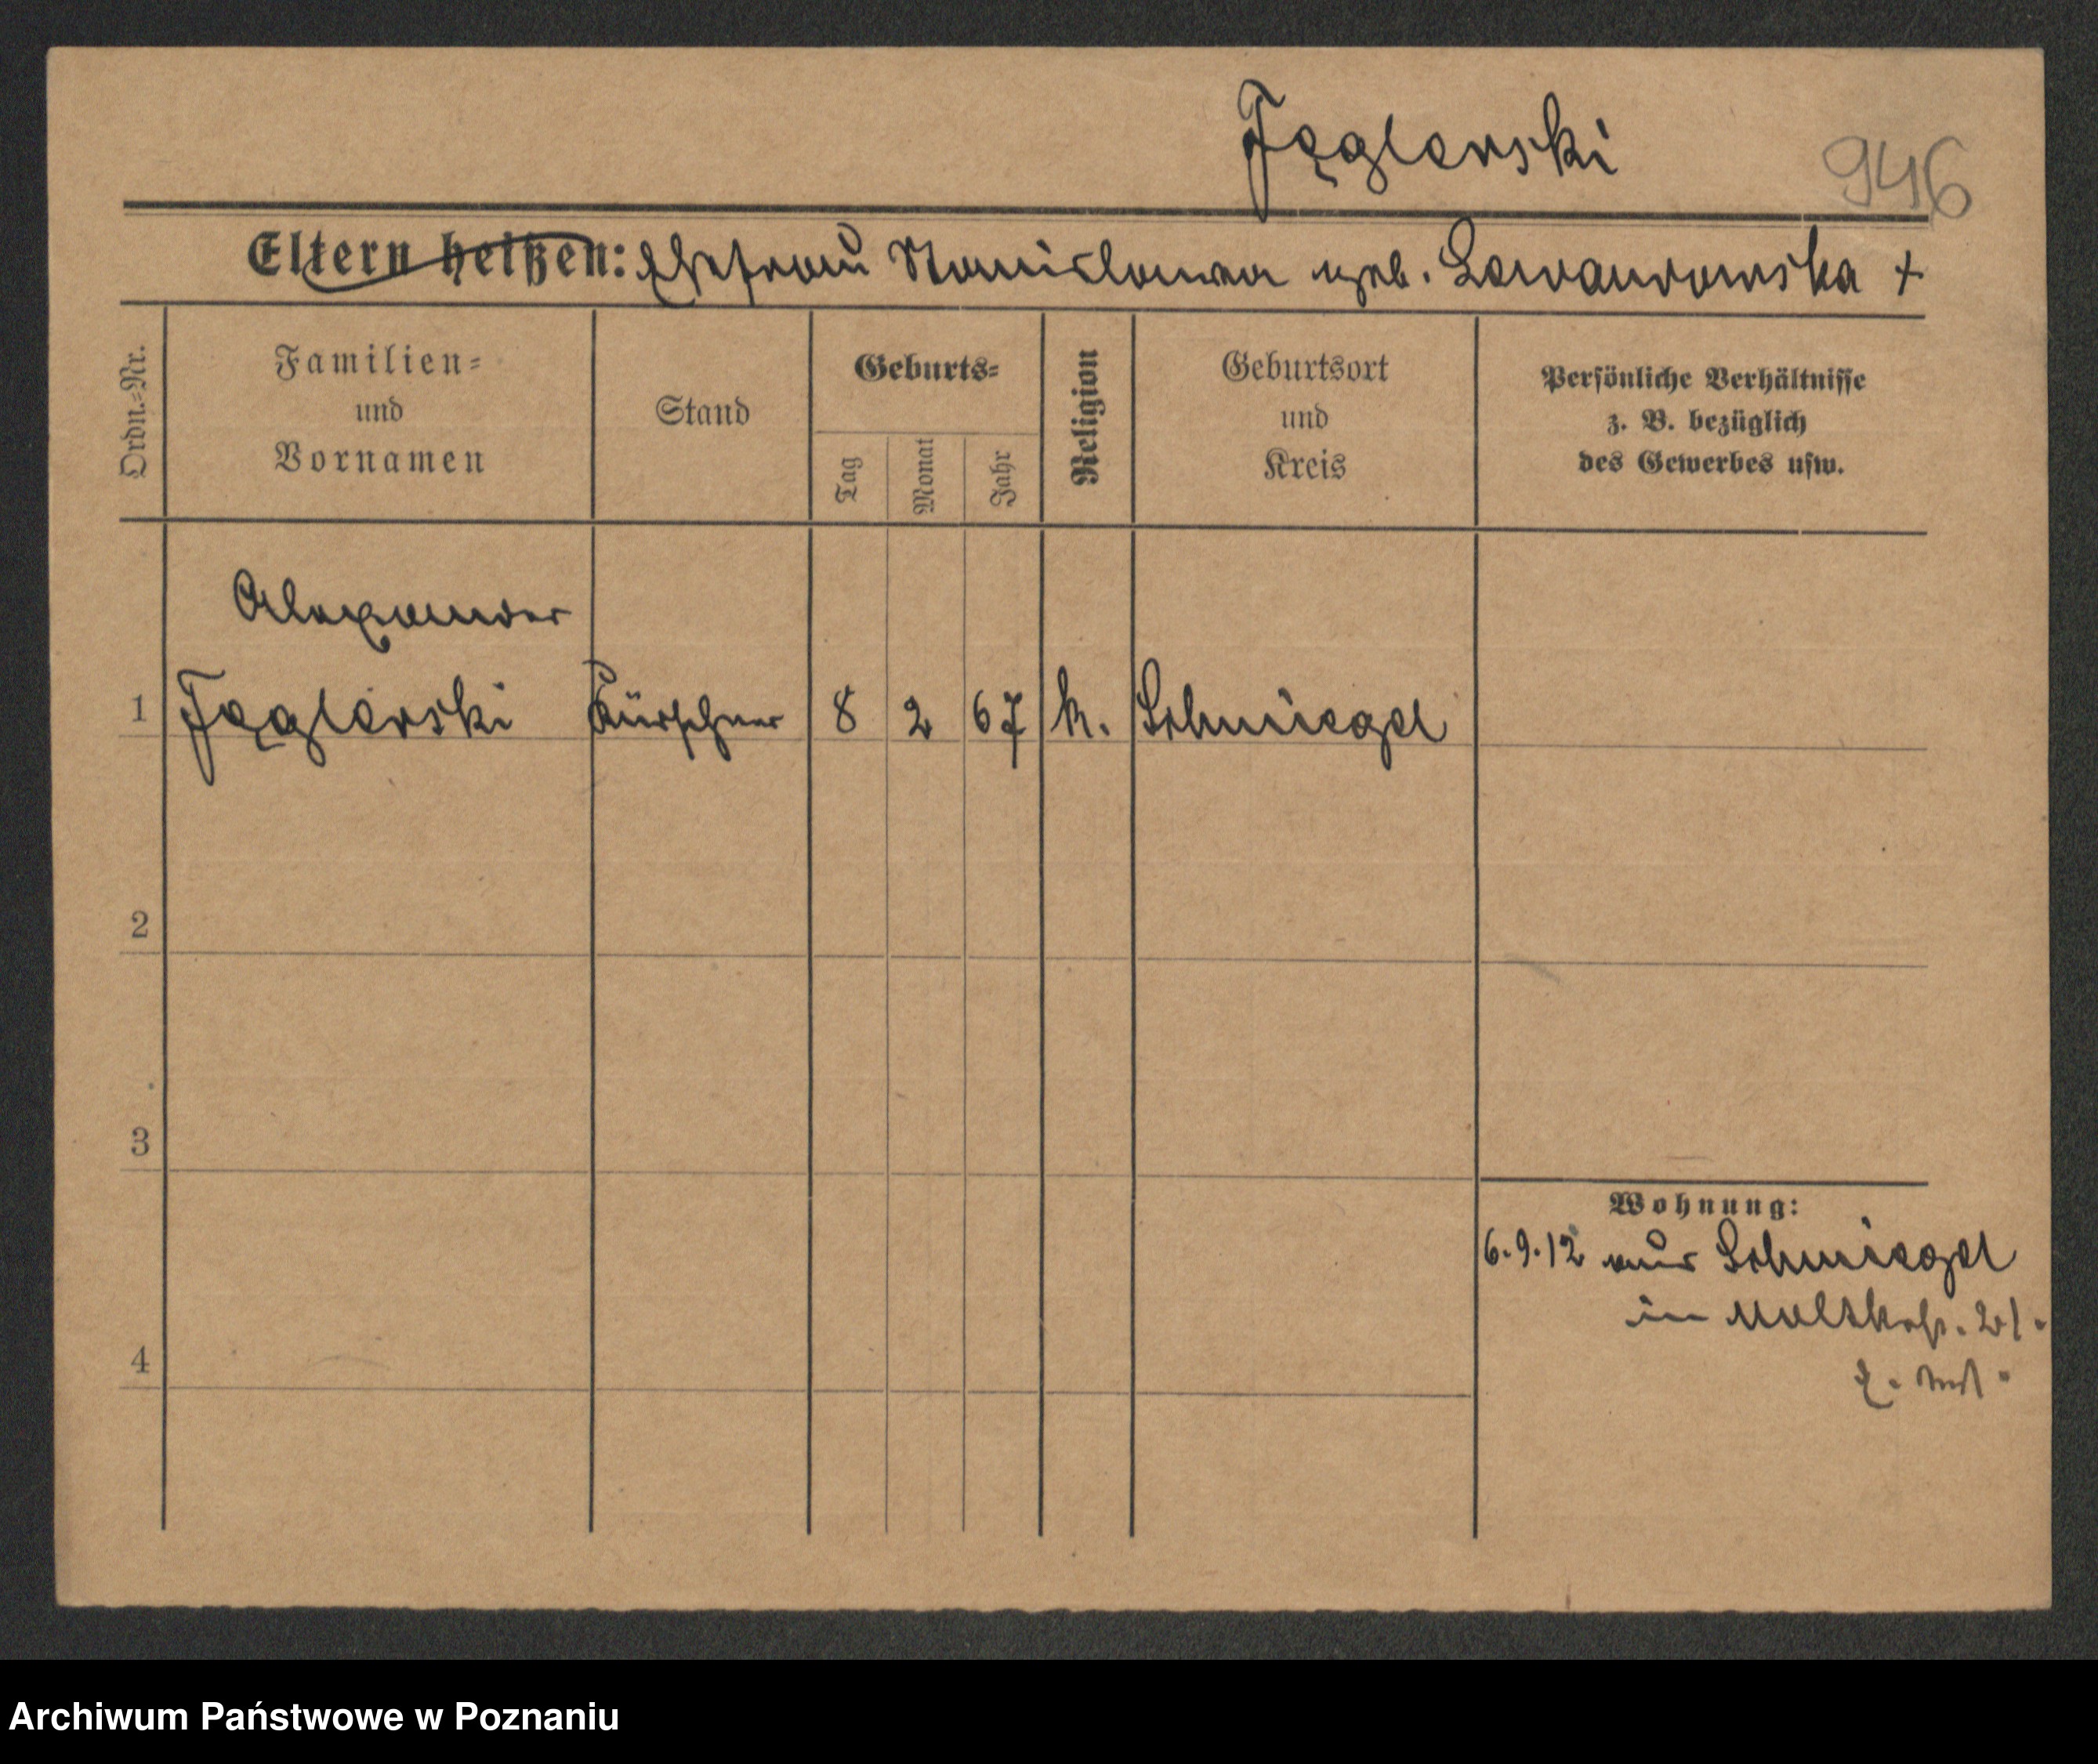 Fęglerski
946
Eltern heißen: Ehefrau Stanislawa geb. Lewandowska +
Ordn.-Nr.
Familien-
und
Vornamen
Stand
Geburts-
Tag
Monat
Jahr
Religion
Geburtsort
und
Kreis
Persönliche Verhältnisse
z. B. bezüglich
des Gewerbes usw.
Alexander
1 Fęglerski Kürschner 8 2 67 k. Schmiegel
2
3
4
Wohnung:
6.9.12 aus Schmiegel
in Moltkestr. 21.
Archiwum Państwowe w Poznaniu